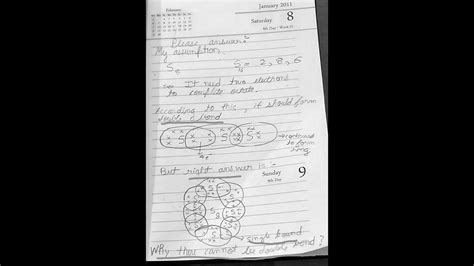 February
January 2011
Saturday 8
8th Day Week 01
Please answer:-
My assumption,
S8 S16 = 2, 8, 6
∞ It need two electrons
to complete octate.
According to this, it should form
double bond
S S S
→ continued
to form
ring
4e-
But right answer is :-
Sunday 9
9th Day
S8
Single bound
Why there cannot be double bond ?